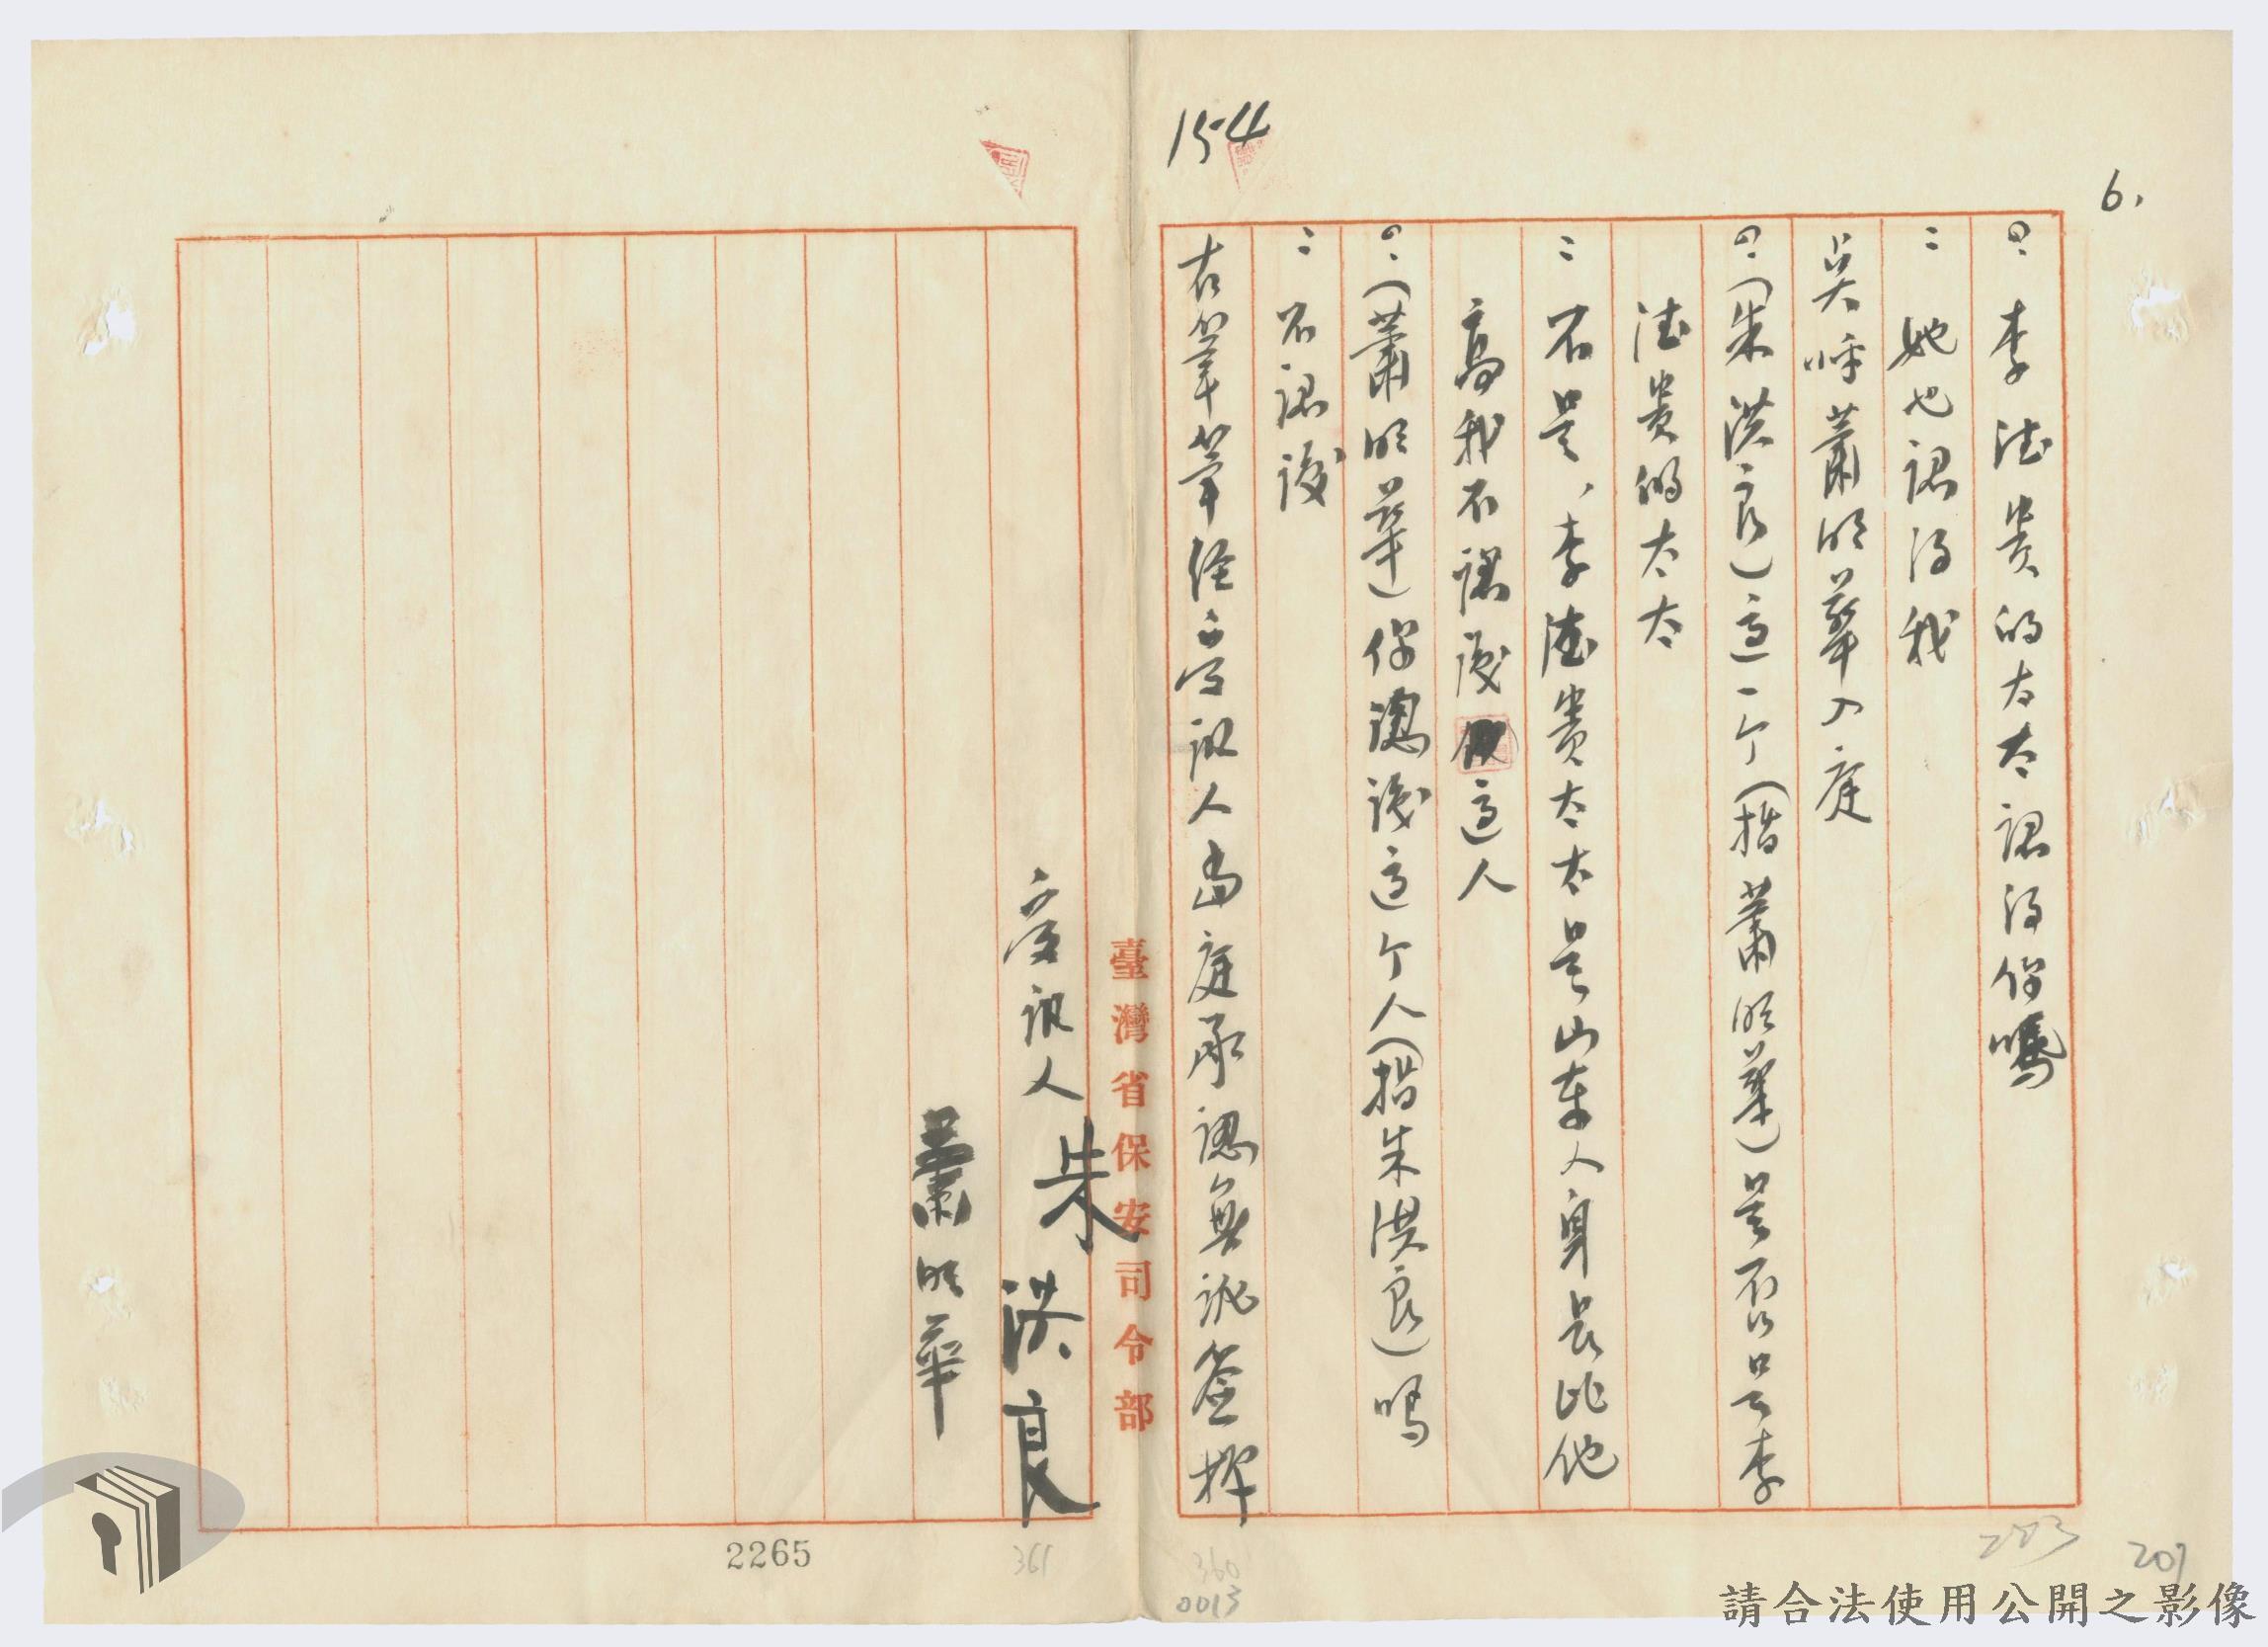 154
6.
：李德貴的太太認得你嗎
：她也認得我
点呼蕭明華入庭
：（朱洪良）這一个（指蕭明華）是否是李
德貴的太太
：不是、李德貴太太是山東人身長比他
高我不認識這人
：（蕭明華）你認識這个人（指朱洪良）嗎
：不認識
右筆經受訊人當庭承認無訛簽押
臺灣省保安司令部
受訊人 朱洪良
蕭明華
2265
361
360
0013
203
207
請合法使用公開之影像